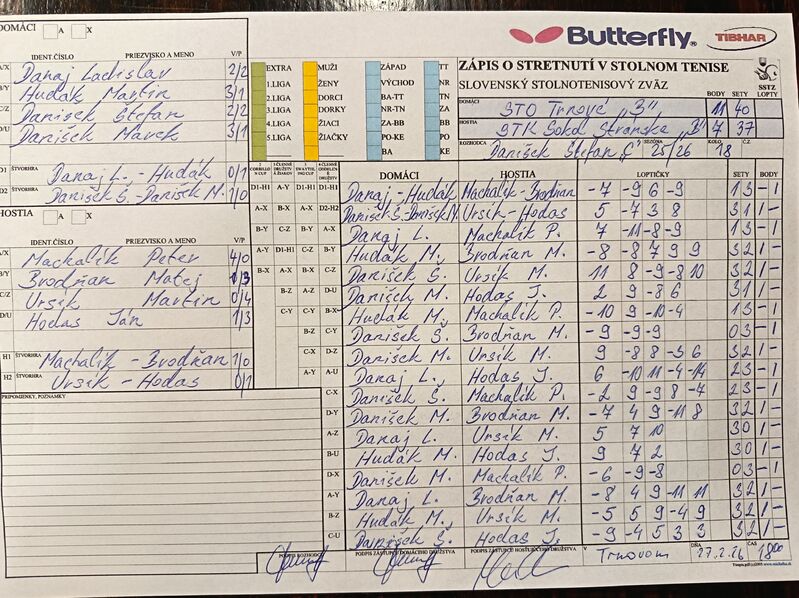 DOMÁCI A X
Butterfly® TIBHAR
IDENT.ČÍSLO PRIEZVISKO A MENO V/P
A/X Danaj Ladislav 2/2
B/Y Hudák Martin 3/1
C/Z Danišek Štefan 2/2
D/U Danišek Marek 3/1
D1 ŠTVORHRA Danaj L. - Hudák 0/1
D2 ŠTVORHRA Danišek Š. - Danišek M. 1/0
HOSTIA A X
IDENT.ČÍSLO PRIEZVISKO A MENO V/P
A/X Machalík Peter 4/0
B/Y Brodňan Matej 1/3
C/Z Ursík Martin 0/4
D/U Hodas Ján 1/3
H1 ŠTVORHRA Machalík - Brodňan 1/0
H2 ŠTVORHRA Ursík - Hodas 0/1
PRIPOMIENKY, POZNÁMKY
EXTRA MUŽI ZÁPAD TT
1.LIGA ŽENY VÝCHOD NR
2.LIGA DORCI BA-TT TN
3.LIGA DORKY NR-TN ZA
4.LIGA ŽIACI ZA-BB BB
5.LIGA ŽIAČKY PO-KE PO
BA KE
ZÁPIS O STRETNUTÍ V STOLNOM TENISE
SLOVENSKÝ STOLNOTENISOVÝ ZVÄZ BODY SETY SSTZ LOPTY
DOMÁCI STO Trnové "B" 11 40
HOSTIA STK Sokol Stránske "B" 7 37
ROZHODCA Danišek Štefan "C" SEZÓNA 25/26 KOLO 18 Č.Z.
DOMÁCI HOSTIA LOPTIČKY SETY BODY
D1-H1 A-Y B-X D1-H1 Danaj - Hudák Machalík - Brodňan -7 -9 6 -9 1 3 - 1
A-X B-X A-X D2-H2 Danišek Š. - Danišek M. Ursík - Hodas 5 -7 3 8 3 1 1 -
B-Y C-Z B-Y A-X Danaj L. Machalík P. 7 -11 -8 -9 1 3 - 1
A-Y D1-H1 C-Z B-Y Hudák M. Brodňan M. -8 -8 7 9 9 3 2 1 -
B-X A-X D1-H1 C-Z Danišek Š. Ursík M. 11 8 -9 -8 10 3 2 1 -
B-Z A-Z D-U Danišek M. Hodas J. 2 9 -8 6 3 1 1 -
C-Y C-Y B-X Hudák M. Machalík P. -10 9 -10 -4 1 3 - 1
B-Z C-Y Danišek Š. Brodňan M. -9 -9 -9 0 3 - 1
C-X D-Z Danišek M. Ursík M. 9 -8 8 -3 6 3 2 1 -
A-Y A-U Danaj L. Hodas J. 6 -10 11 -4 -14 2 3 - 1
C-X Danišek Š. Machalík P. -2 9 -9 8 -7 2 3 - 1
D-Y Danišek M. Brodňan M. -7 4 9 -11 8 3 2 1 -
A-Z Danaj L. Ursík M. 5 7 10 3 0 1 -
B-U Hudák M. Hodas J. 9 7 2 3 0 1 -
D-X Danišek M. Machalík P. -6 -9 -8 0 3 - 1
A-Y Danaj L. Brodňan M. -8 4 9 -11 11 3 2 1 -
B-Z Hudák M. Ursík M. -5 5 9 -4 9 3 2 1 -
C-U Danišek Š. Hodas J. -9 -4 5 3 3 3 2 1 -
PODPIS ROZHODCU PODPIS ZÁSTUPCU DOMÁCEHO DRUŽSTVA PODPIS ZÁSTUPCU HOSŤUJÚCEHO DRUŽSTVA V Trnovom DŇA 27.2.26 ČAS 18:00